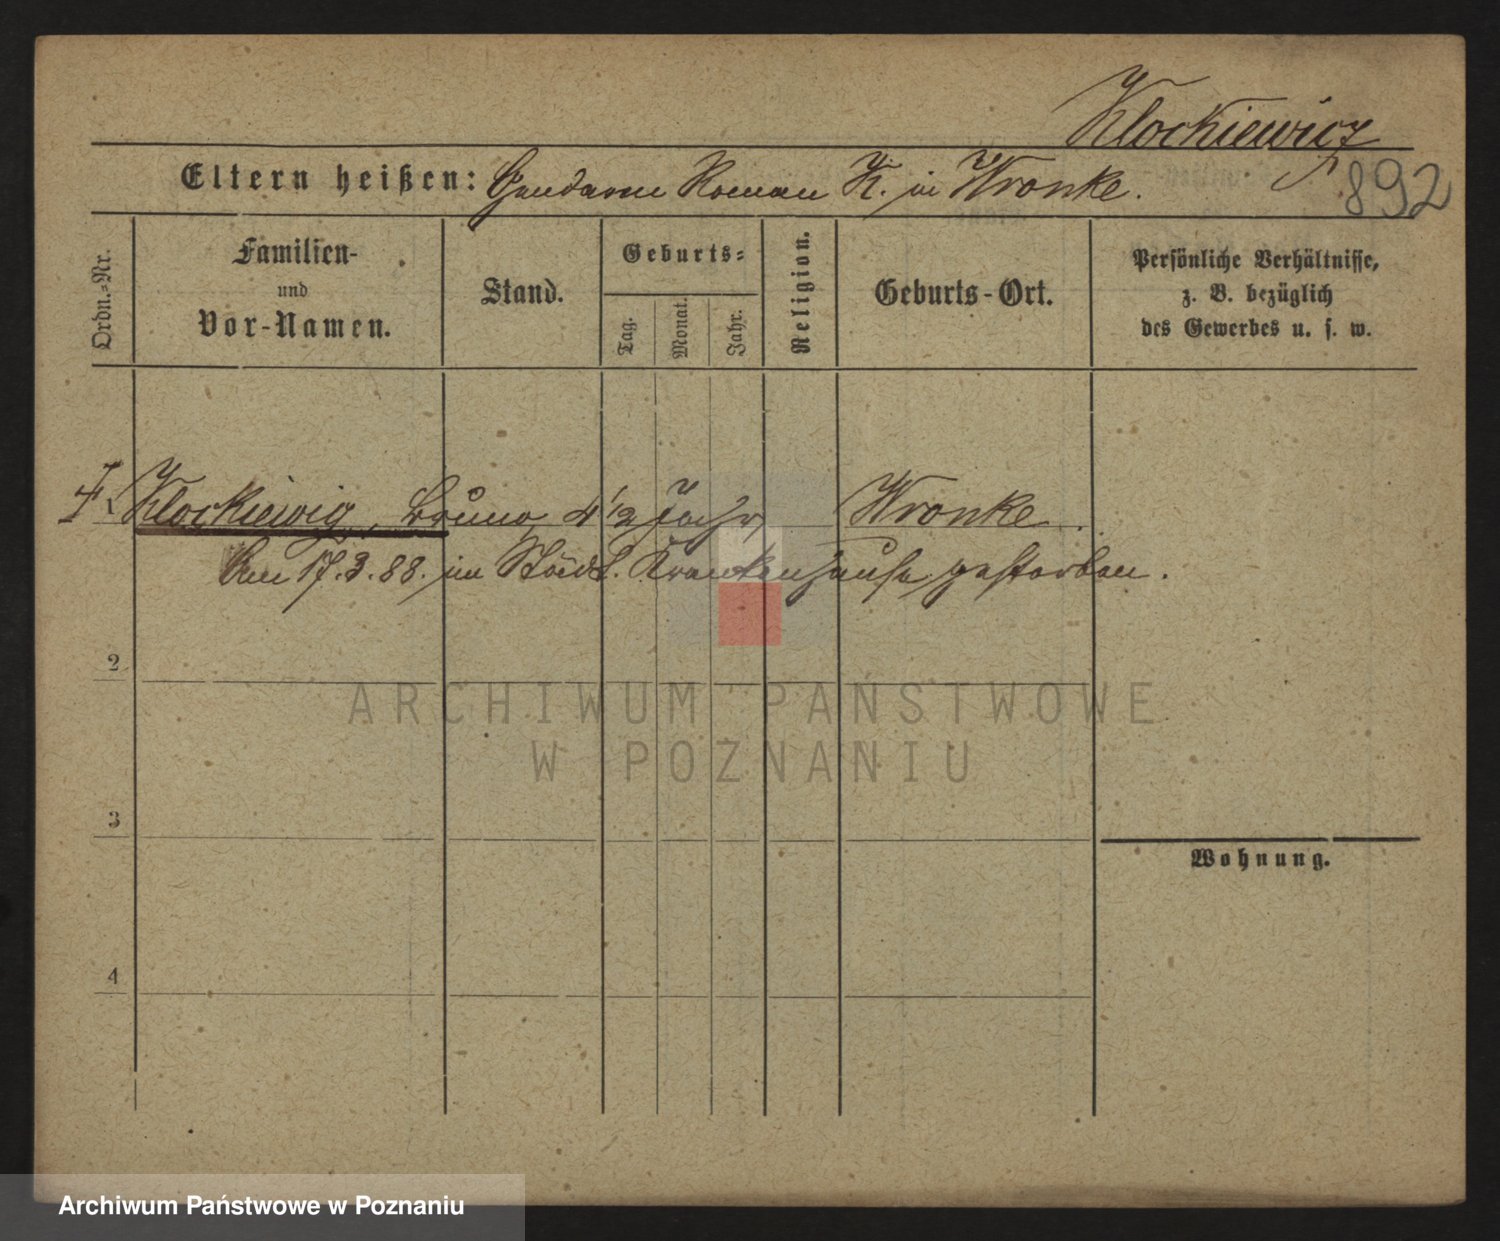 Klockiewicz
Eltern heißen: Gendarm Roman K. in Wronke.
892
Ordn.-Nr.
Familien-
und
Vor-Namen.
Stand.
Geburts-
Tag.
Monat.
Jahr.
Religion.
Geburts-Ort.
Persönliche Verhältnisse,
z. B. bezüglich
des Gewerbes u. s. w.
1 Klockiewig, Bruno, 4 1/2 Jahr, Wronke.
Am 17.3.88. im Städt. Krankenhause gestorben.
2
ARCHIWUM PAŃSTWOWE
W POZNANIU
3
Wohnung.
4
Archiwum Państwowe w Poznaniu